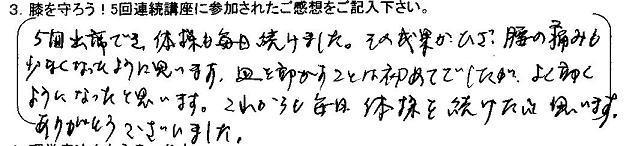 3. 膝を守ろう!5回連続講座に参加されたご感想をご記入下さい。
5回出席でき、体操も毎日続けました。その成果か、ひざ、腰の痛みも
少なくなったように思います。皿を動かすことは初めてでしたが、よく動く
ようになったと思います。これからも毎日体操を続けたいと思います。
ありがとうございました。